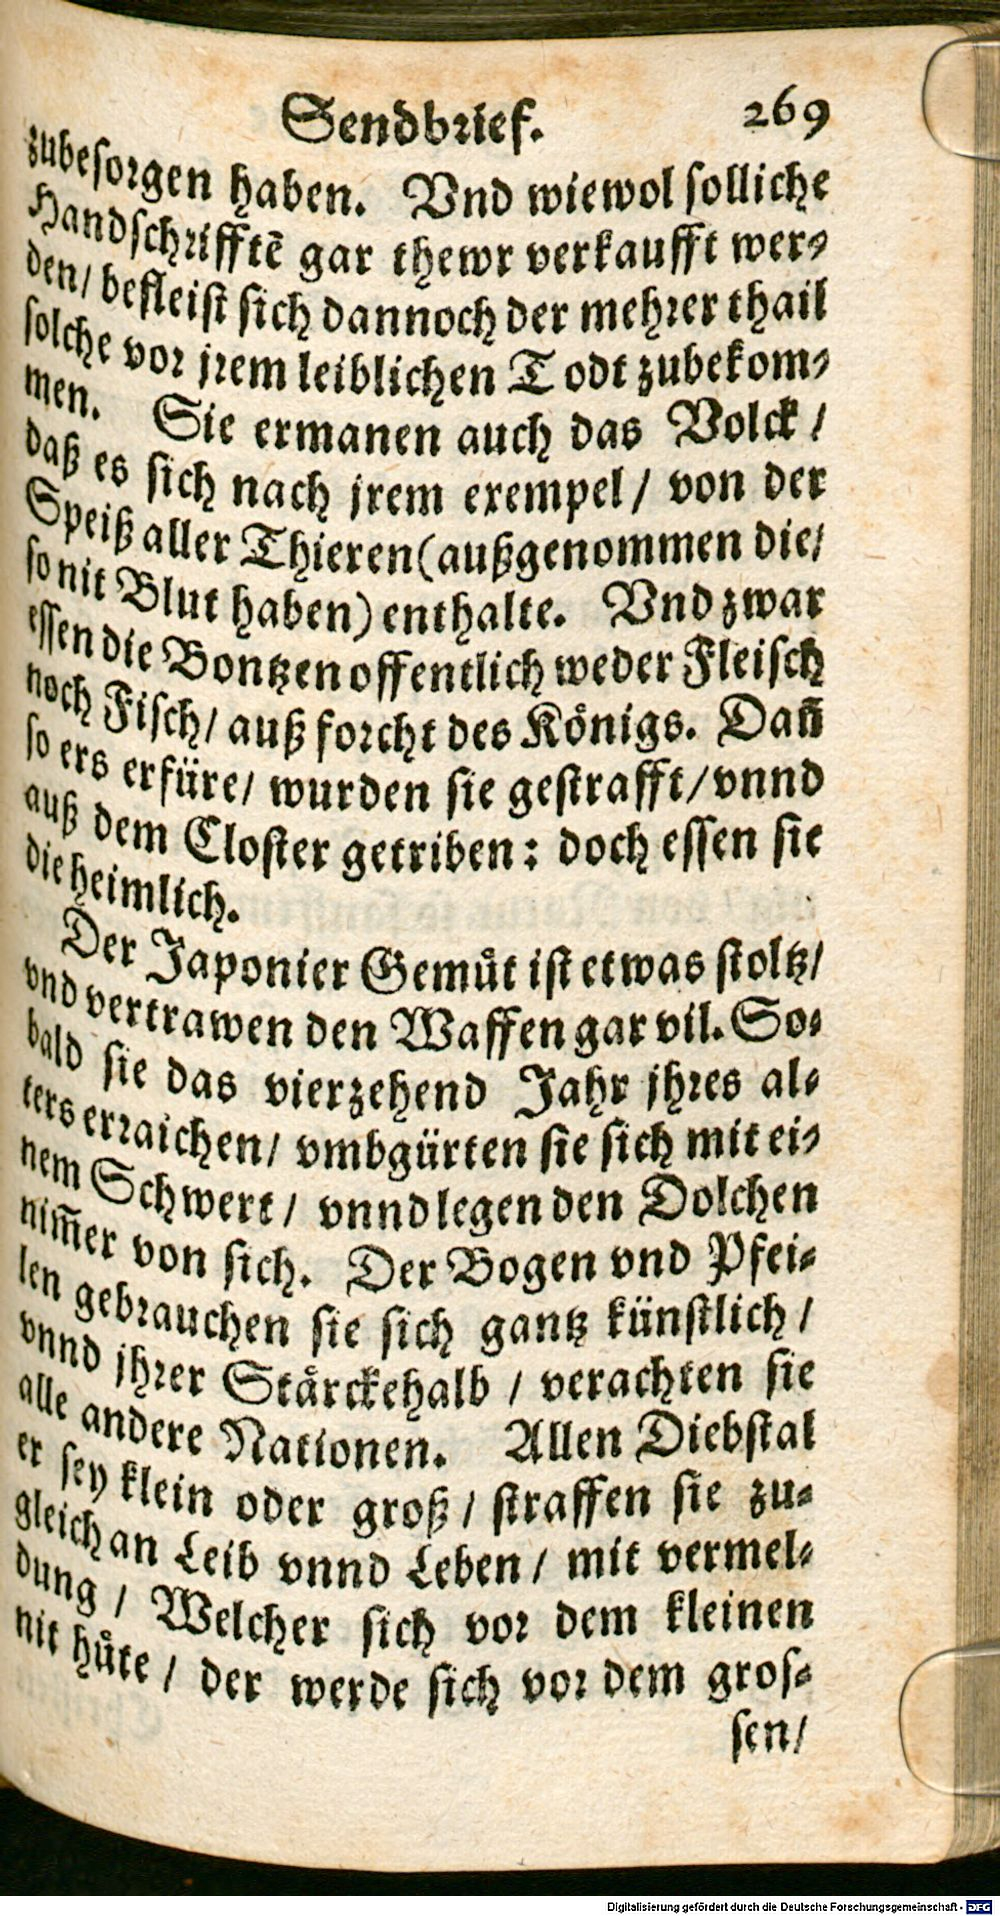 Sendbrief. 269
zubesorgen haben. Vnd wiewol solliche
Handschrifftē gar thewr verkaufft wer-
den/ befleist sich dannoch der mehrer thail
solche vor jrem leiblichen Todt zubekom-
men. Sie ermanen auch das Volck /
daß es sich nach jrem exempel/ von der
Speiß aller Thieren (außgenommen die/
so nit Blut haben) enthalte. Vnd zwar
essen die Bontzen offentlich weder Fleisch
noch Fisch/ auß forcht des Königs. Dañ
so ers erfüre/ wurden sie gestrafft/ vnnd
auß dem Closter getriben: doch essen sie
die heimlich.
Der Japonier Gemuͤt ist etwas stoltz/
vnd vertrawen den Waffen gar vil. So-
bald sie das vierzehend Jahr jhres al-
ters erraichen/ vmbgürten sie sich mit ei-
nem Schwert/ vnnd legen den Dolchen
nim̄er von sich. Der Bogen vnd Pfei-
len gebrauchen sie sich gantz künstlich /
vnnd jhrer Staͤrckehalb / verachten sie
alle andere Nationen. Allen Diebstal
er sey klein oder groß/ straffen sie zu-
gleich an Leib vnnd Leben/ mit vermel-
dung / Welcher sich vor dem kleinen
nit huͤte / der werde sich vor dem gros-
sen/
Digitalisierung gefördert durch die Deutsche Forschungsgemeinschaft - DFG